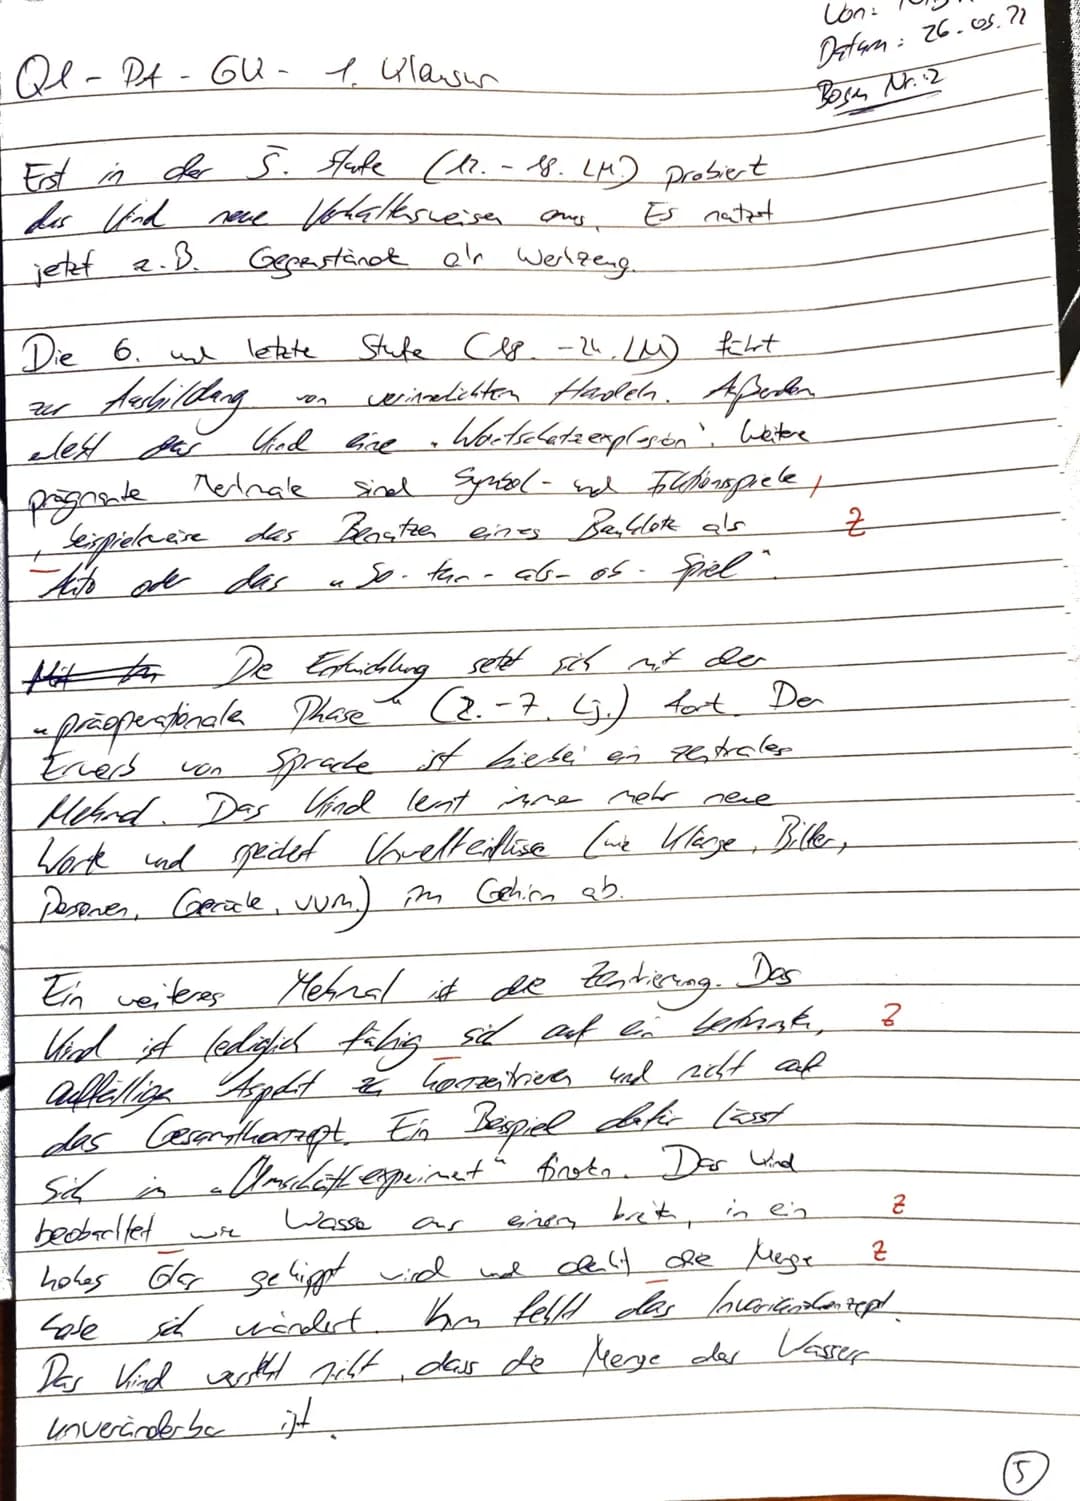 Von:
Datum: 26.05.21
Bogen Nr.: 2
Q1 - PA - GK - 1. Klausur
Erst in der 5. Stufe (12. - 18. LM) probiert
das Kind neue Verhaltensweisen aus. Es nutzt
jetzt z.B. Gegenstände als Werkzeug.
Die 6. und letzte Stufe (18. - 24. LM) führt
zur Ausbildung von verinnerlichten Handeln. Außerdem
erlebt das Kind eine „Wortschatzexplosion". Weitere
prägnante Merkmale sind Symbol- und Fiktionsspiele,
, beispielsweise das Benutzen eines Bauklotz als Z
Auto oder das „So-tun-als-ob-Spiel".
Die Entwicklung setzt sich mit der
„präoperationalen Phase" (2. - 7. Lj.) fort. Der
Erwerb von Sprache ist hierbei ein zentrales
Merkmal. Das Kind lernt immer mehr neue
Worte und speichert Umwelteinflüsse (wie Klänge, Bilder,
Personen, Gerüche, uvm.) im Gehirn ab.
Ein weiteres Merkmal ist die Zentrierung. Das
Kind ist lediglich fähig sich auf ein bestimmten, Z
auffälligen Aspekt zu konzentrieren und nicht auf
das Gesamtkonzept. Ein Beispiel dafür lässt
sich in „Umschüttexperiment" finden. Das Kind
beobachtet wie Wasser aus einem breiten, in ein Z
hohes Glas gekippt wird und denkt die Menge Z
habe sich verändert. Ihm fehlt das Invarianzkonzept.
Das Kind versteht nicht, dass die Menge des Wassers
unveränderbar ist.
5